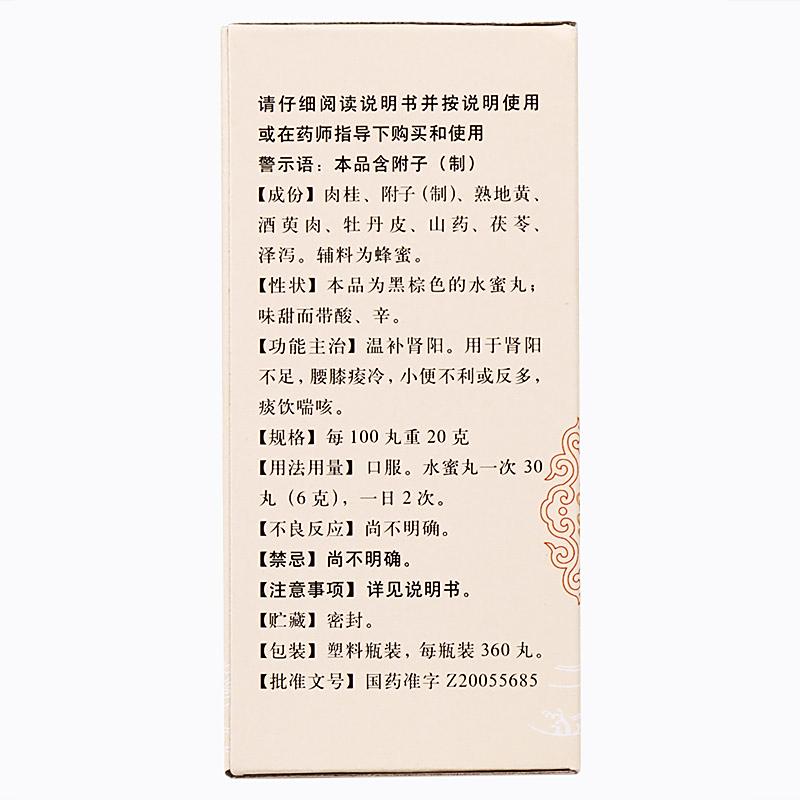 请仔细阅读说明书并按说明使用
或在药师指导下购买和使用
警示语：本品含附子（制）
【成份】肉桂、附子（制）、熟地黄、
酒萸肉、牡丹皮、山药、茯苓、
泽泻。辅料为蜂蜜。
【性状】本品为黑棕色的水蜜丸；
味甜而带酸、辛。
【功能主治】温补肾阳。用于肾阳
不足，腰膝痠冷，小便不利或反多，
痰饮喘咳。
【规格】每100丸重20克
【用法用量】口服。水蜜丸一次30
丸（6克），一日2次。
【不良反应】尚不明确。
【禁忌】尚不明确。
【注意事项】详见说明书。
【贮藏】密封。
【包装】塑料瓶装，每瓶装360丸。
【批准文号】国药准字Z20055685